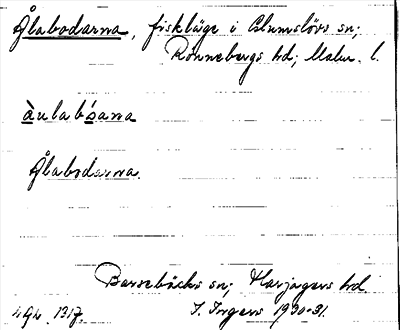 Ålabodarna, fiskläge i Glumslövs sn;
Rönnebergs hd; Malm. l.
àulabósana
Ålabodarna.
Barsebäcks sn; Harjagers hd.
I. Ingers 1930-31.